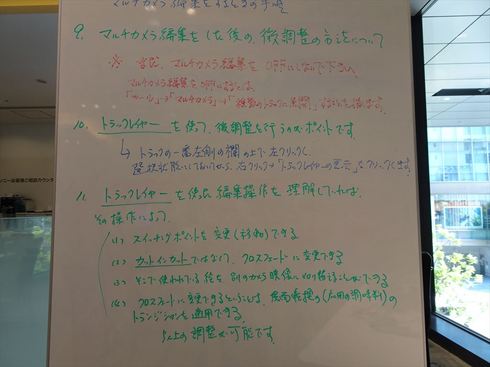 マルチカメラ編集をするときの手順
9. マルチカメラ編集をした後の、微調整の方法について
※ まだ、マルチカメラ編集を OFFにしないで下さい。
マルチカメラ編集をOFFにするには、
「ツール」→「マルチカメラ」→「複数のトラックに展開」
10. トラックレイヤーを使って、微調整を行うのがポイントです。
↳ トラックの一番左側の欄の上で左クリックし、
右クリック→「トラックレイヤーの表示」をクリック
11. トラックレイヤーを使った編集操作を理解していれば、
その操作によって、
(1) スイッチングポイントを変更(移動)できる
(2) カットインカットではなくて、クロスフェードに変更できる
(3) そこで使われている絵を別のカメラ映像に切り替えることができる
(4) クロスフェードに変更できるということは、
トランジションを適用できる。
以上の調整が可能です。